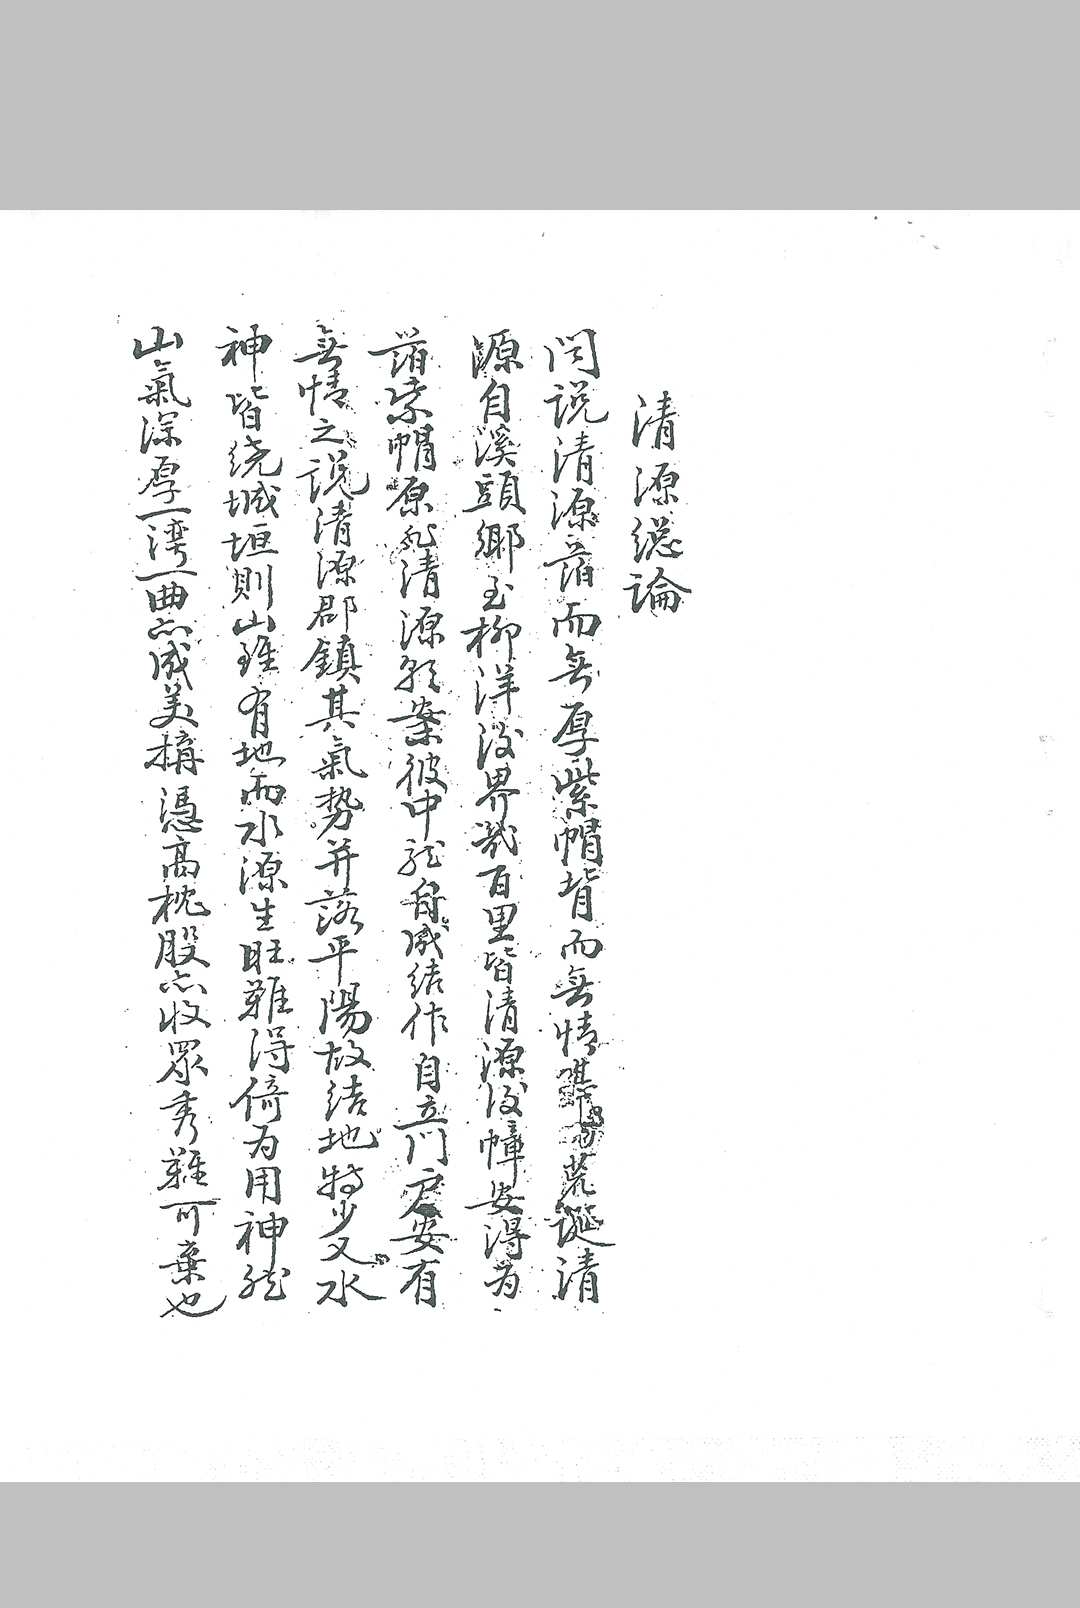 清源総論
問説清源薄而無厚紫帽背而無情荒誕清
源自溪頭鄉至柳洋後界裁百里皆清源後幛安得为
薄紫帽原非清源後案彼中龙自成结作自立门户安有
無情之説清源郡鎮其氣势并落平陽故结地特少又水
神皆绕城垣則山雖有地而水源生旺難得倚为用神然
山氣深厚一湾一曲亦成美構憑高枕股亦收眾秀難可棄也